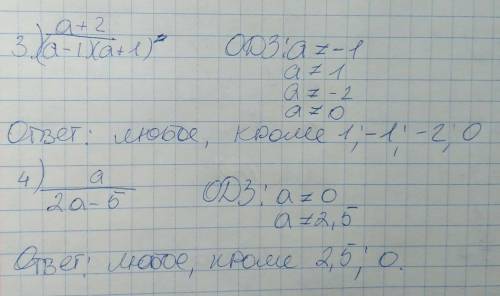 3.) a+2 / (a-1)(a+1) = ОДЗ: a ≠ -1
a ≠ 1
a ≠ -2
a ≠ 0
Ответ: любое, кроме 1; -1; -2; 0
4) a / 2a-5 ОДЗ: a ≠ 0
a ≠ 2,5
Ответ: любое, кроме 2,5; 0.